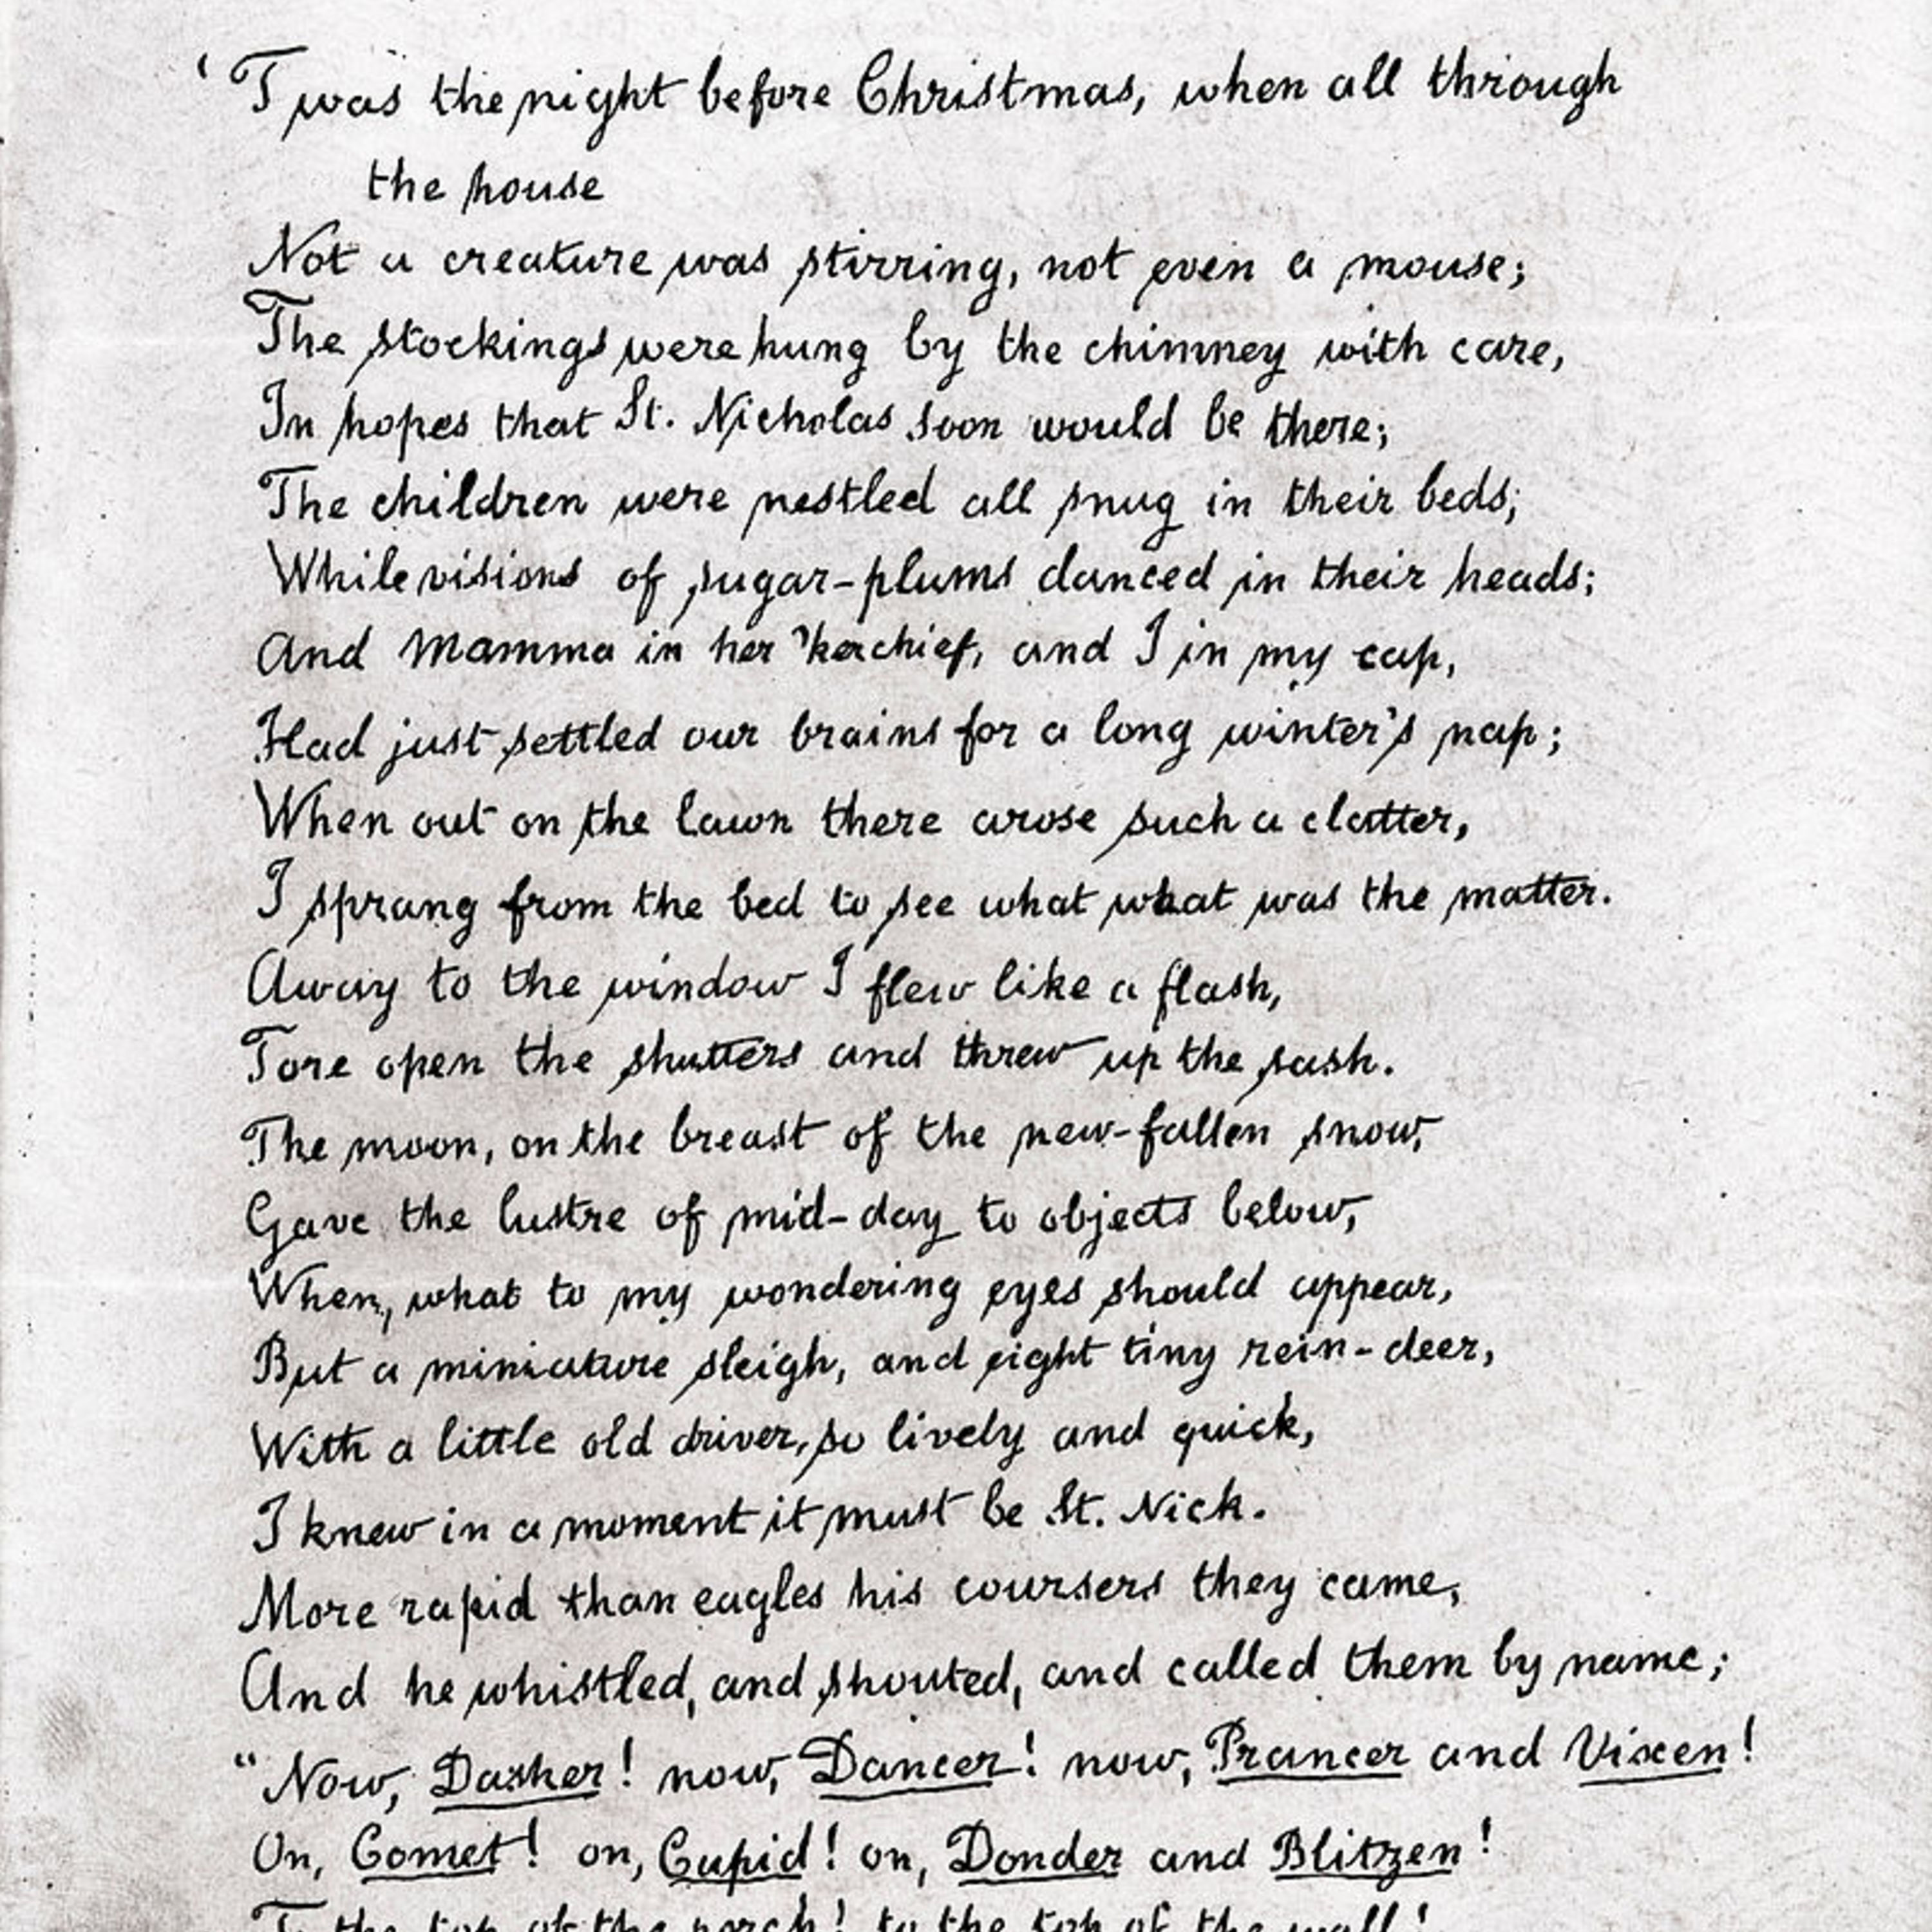 'Twas the night before Christmas, when all through
the house
Not a creature was stirring, not even a mouse;
The stockings were hung by the chimney with care,
In hopes that St. Nicholas soon would be there;
The children were nestled all snug in their beds;
While visions of sugar-plums danced in their heads;
And Mamma in her 'kerchief, and I in my cap,
Had just settled our brains for a long winter's nap;
When out on the lawn there arose such a clatter,
I sprang from the bed to see what what was the matter.
Away to the window I flew like a flash,
Tore open the shutters and threw up the sash.
The moon, on the breast of the new-fallen snow,
Gave the lustre of mid-day to objects below,
When, what to my wondering eyes should appear,
But a miniature sleigh, and eight tiny rein-deer,
With a little old driver, so lively and quick,
I knew in a moment it must be St. Nick.
More rapid than eagles his coursers they came,
And he whistled, and shouted, and called them by name;
"Now, Dasher! now, Dancer! now, Prancer and Vixen!
On, Comet! on, Cupid! on, Donder and Blitzen!
To the top of the porch! to the top of the wall!